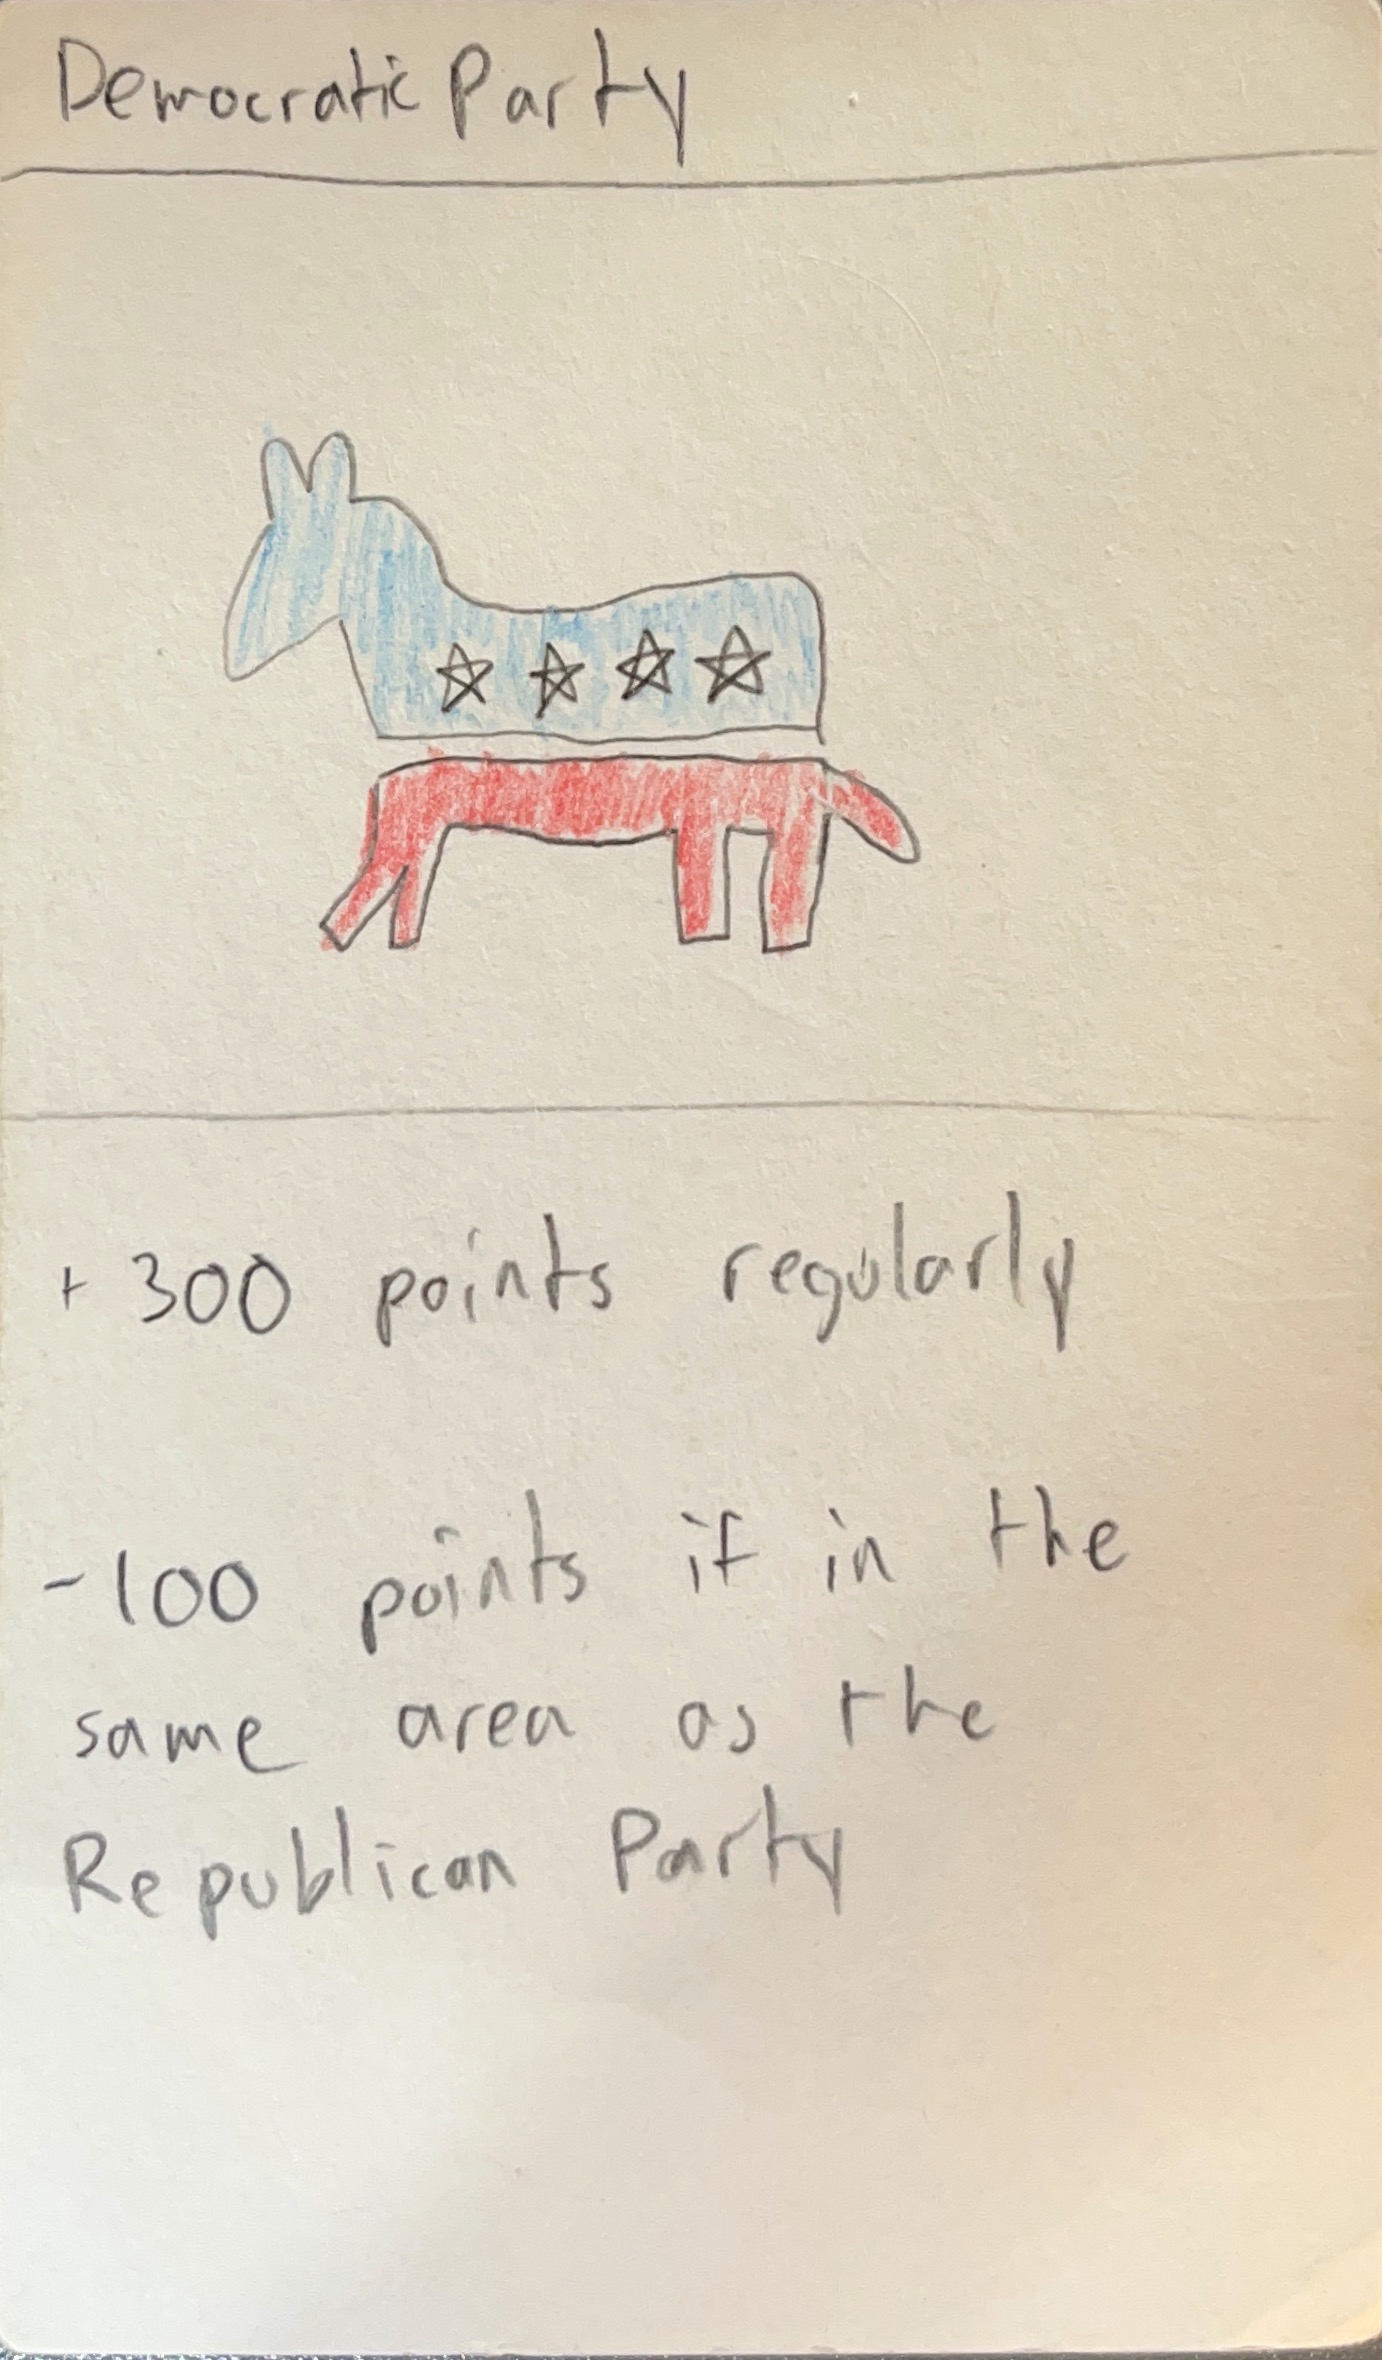 Democratic Party
+300 points regularly
-100 points if in the
same area as the
Republican Party